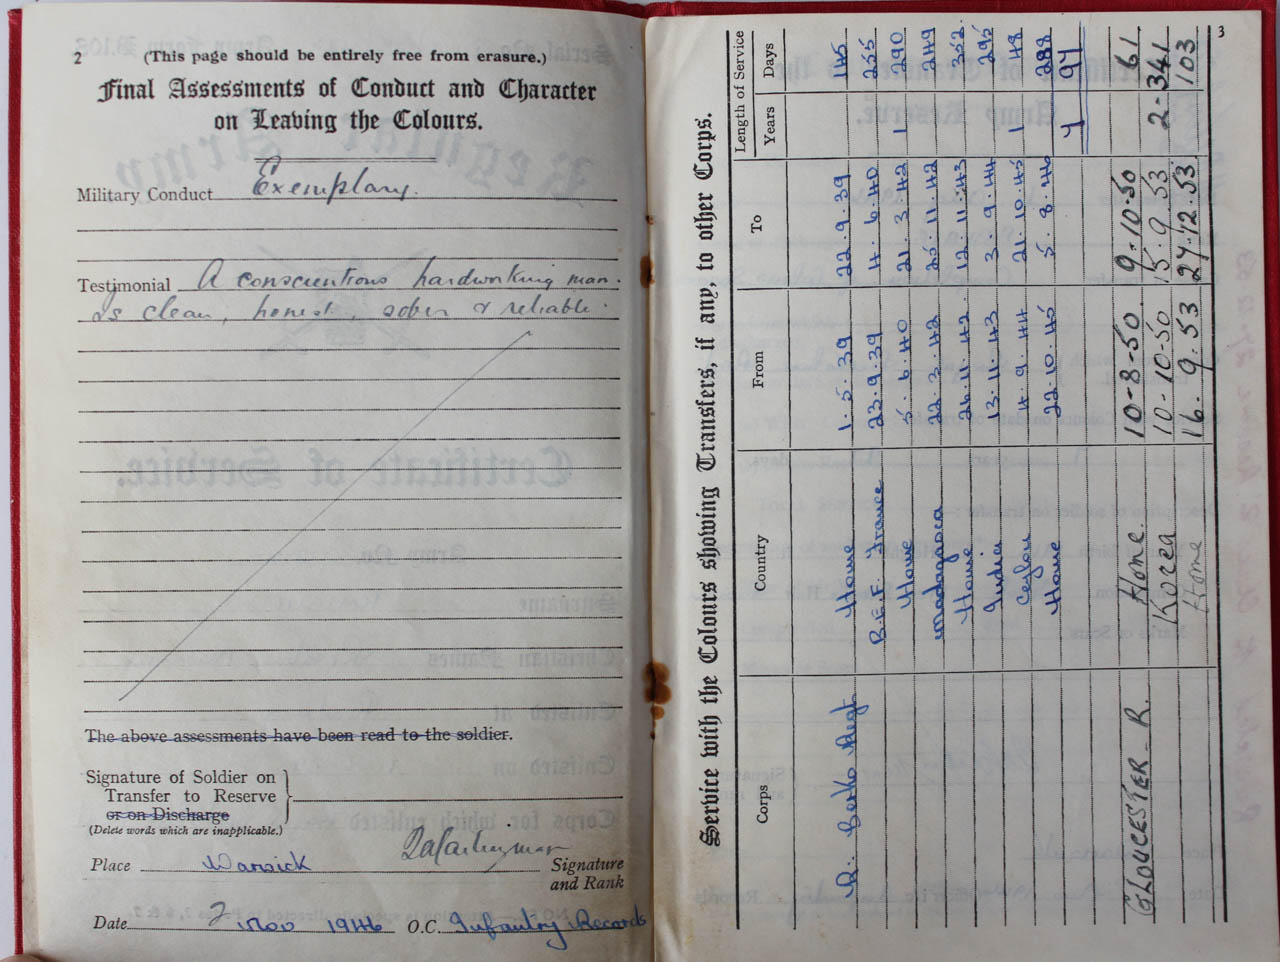 2
(This page should be entirely free from erasure.)
Final Assessments of Conduct and Character
on Leaving the Colours.
Military Conduct Exemplary.
Testimonial A conscientious hardworking man.
Is clean, honest, sober & reliable.
The above assessments have been read to the soldier.
Signature of Soldier on
Transfer to Reserve
or on Discharge
(Delete words which are inapplicable.)
Place Warwick
Signature
and Rank
Date 2 Nov 1946 O.C. Infantry Records
3
Service with the Colours showing Transfers, if any, to other Corps.
Corps Country From To Length of Service
Years Days
R. Berks Regt Home 1. 5. 39 22. 9. 39 145
B.E.F. France 23. 9. 39 4. 6. 40 255
Home 5. 6. 40 21. 3. 42 1 290
Madagascar 22. 3. 42 25. 11. 42 249
Home 26. 11. 42 12. 11. 43 352
India 13. 11. 43 3. 9. 44 295
Ceylon 4. 9. 44 21. 10. 45 1 48
Home 22. 10. 45 5. 8. 46 288
7 97
GLOUCESTER - R. Home. 10-8-50. 9-10-50 61
Korea 10-10-50 15. 9. 53 2 - 341
Home 16. 9. 53 27. 12. 53 103